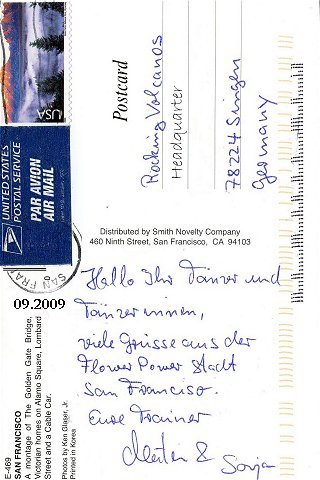 USA
UNITED STATES
POSTAL SERVICE
PAR AVION
AIR MAIL
SAN FRA
09.2009
Postcard
Rocking Volcanos
Headquarter
78224 Singen
Germany
Distributed by Smith Novelty Company
460 Ninth Street, San Francisco, CA 94103
Hallo Ihr Tänzer und
Tänzerinnen,
viele Grüsse aus der
Flower Power Stadt
San Francisco.
Eure Trainer
&
Sonja
E-469
SAN FRANCISCO
A montage of The Golden Gate Bridge,
Victorian homes on Alamo Square, Lombard
Street and a Cable Car.
Photos by Ken Glaser, Jr.
Printed in Korea